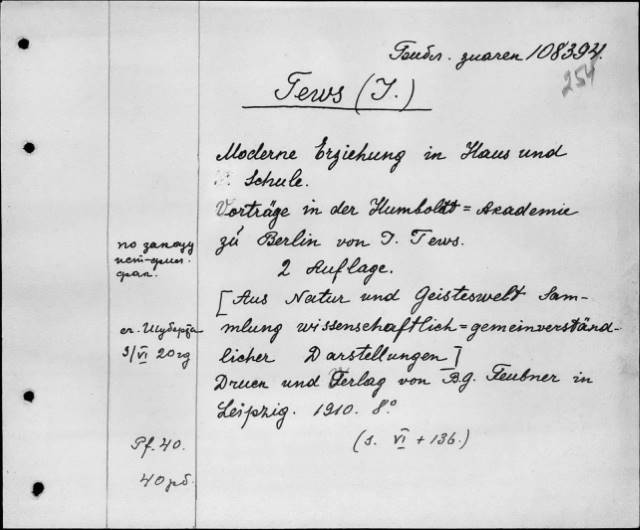 108394.
254
Tews (J.)
Moderne Erziehung in Haus und
Schule.
Vorträge in der Humboldt=Akademie
zu Berlin von J. Tews.
2 Auflage.
[Aus Natur und Geisteswelt Sam-
mlung wissenschaftlich=gemeinverständ-
licher Darstellungen]
Druck und Verlag von B.G. Teubner in
Leipzig. 1910. 8°
(s. VI + 136.)
по западу
ист-фил.
фак.
ст. Шуберта
3/VI 20 гд
Pf. 40.
40 рб.